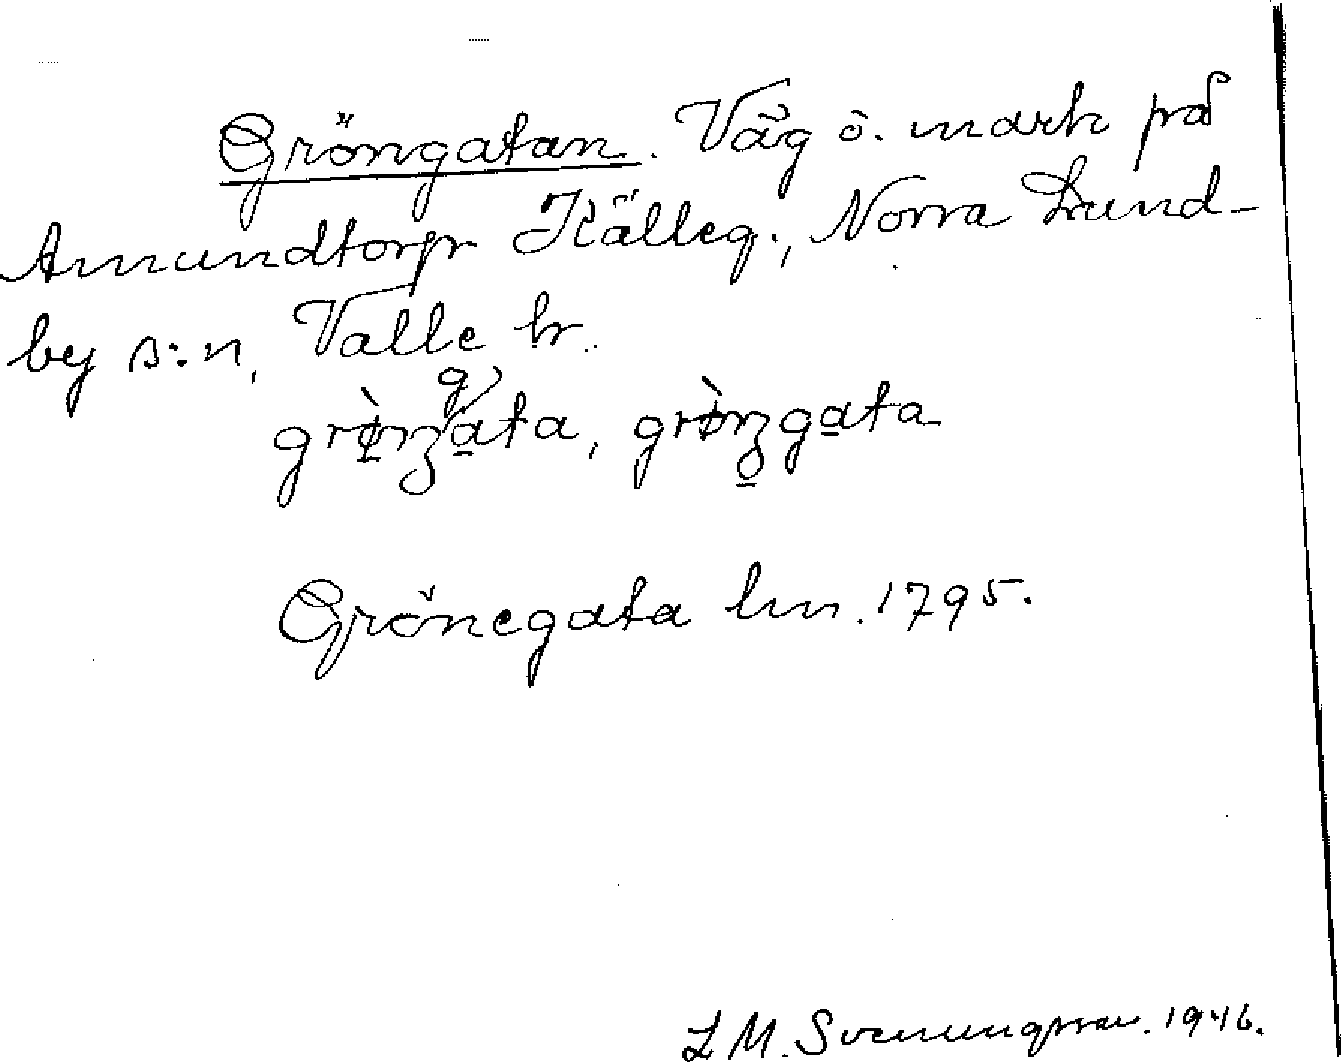 Gröngatan. Väg o. mark på
Amundtorp Källeg., Norra Lund-
by s:n, Valle hr.
grø̀nʒgata, grø̀nʒgata
Grönegata lm. 1795.
L M. Svenungsson. 1946.